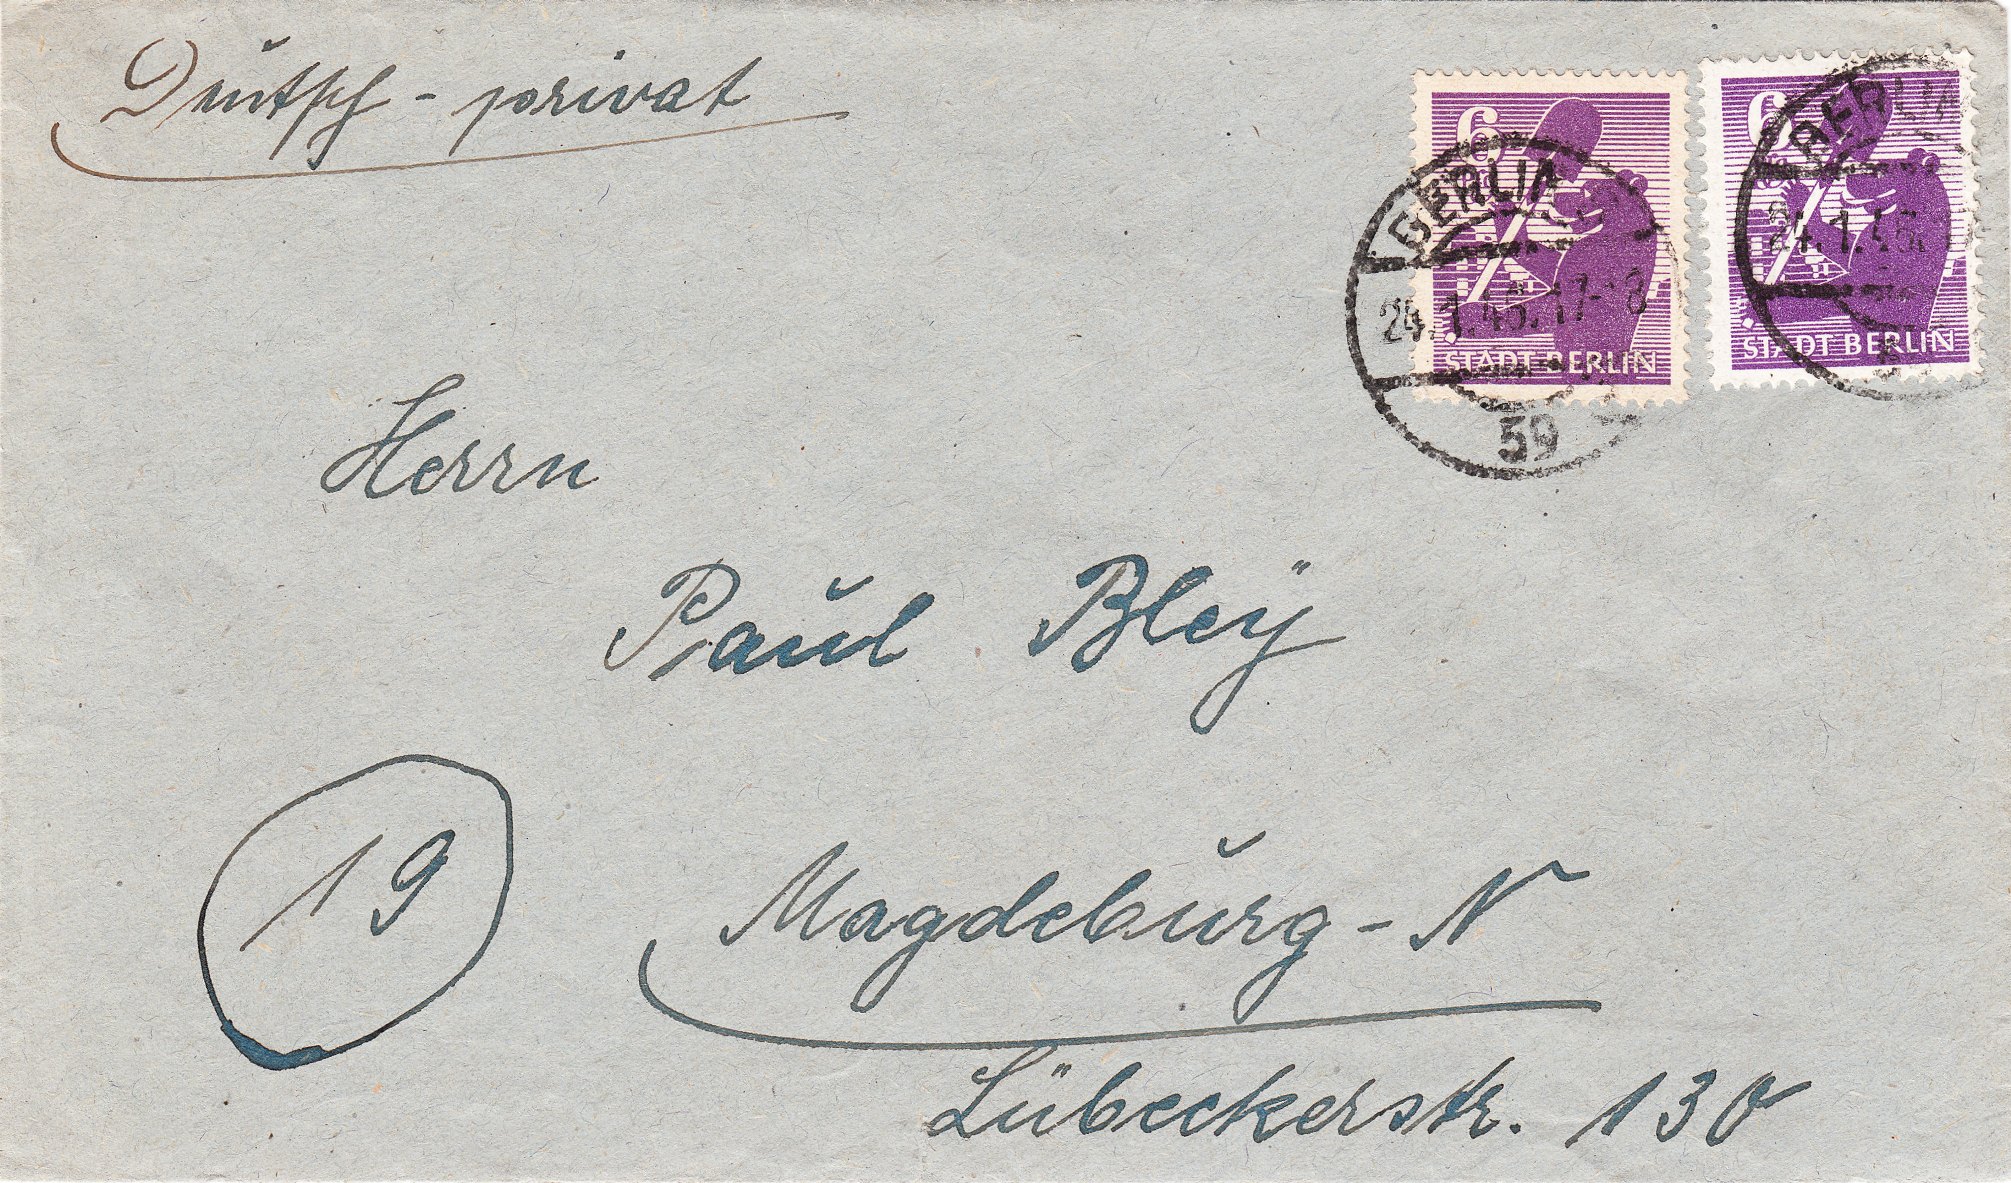 Deutsch - privat
6 Pf
STADT BERLIN
6
STADT BERLIN
BERLIN
24.1.46.17-18
59
BERLIN
24.1.46.
Herrn
Paul Bley
19
Magdeburg - N
Lübeckerstr. 130